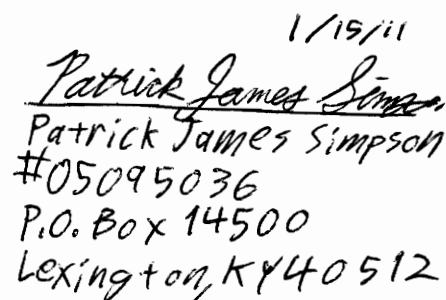 1/15/11
Patrick James Simpson
Patrick James Simpson
#05095036
P.O. Box 14500
Lexington, KY 40512